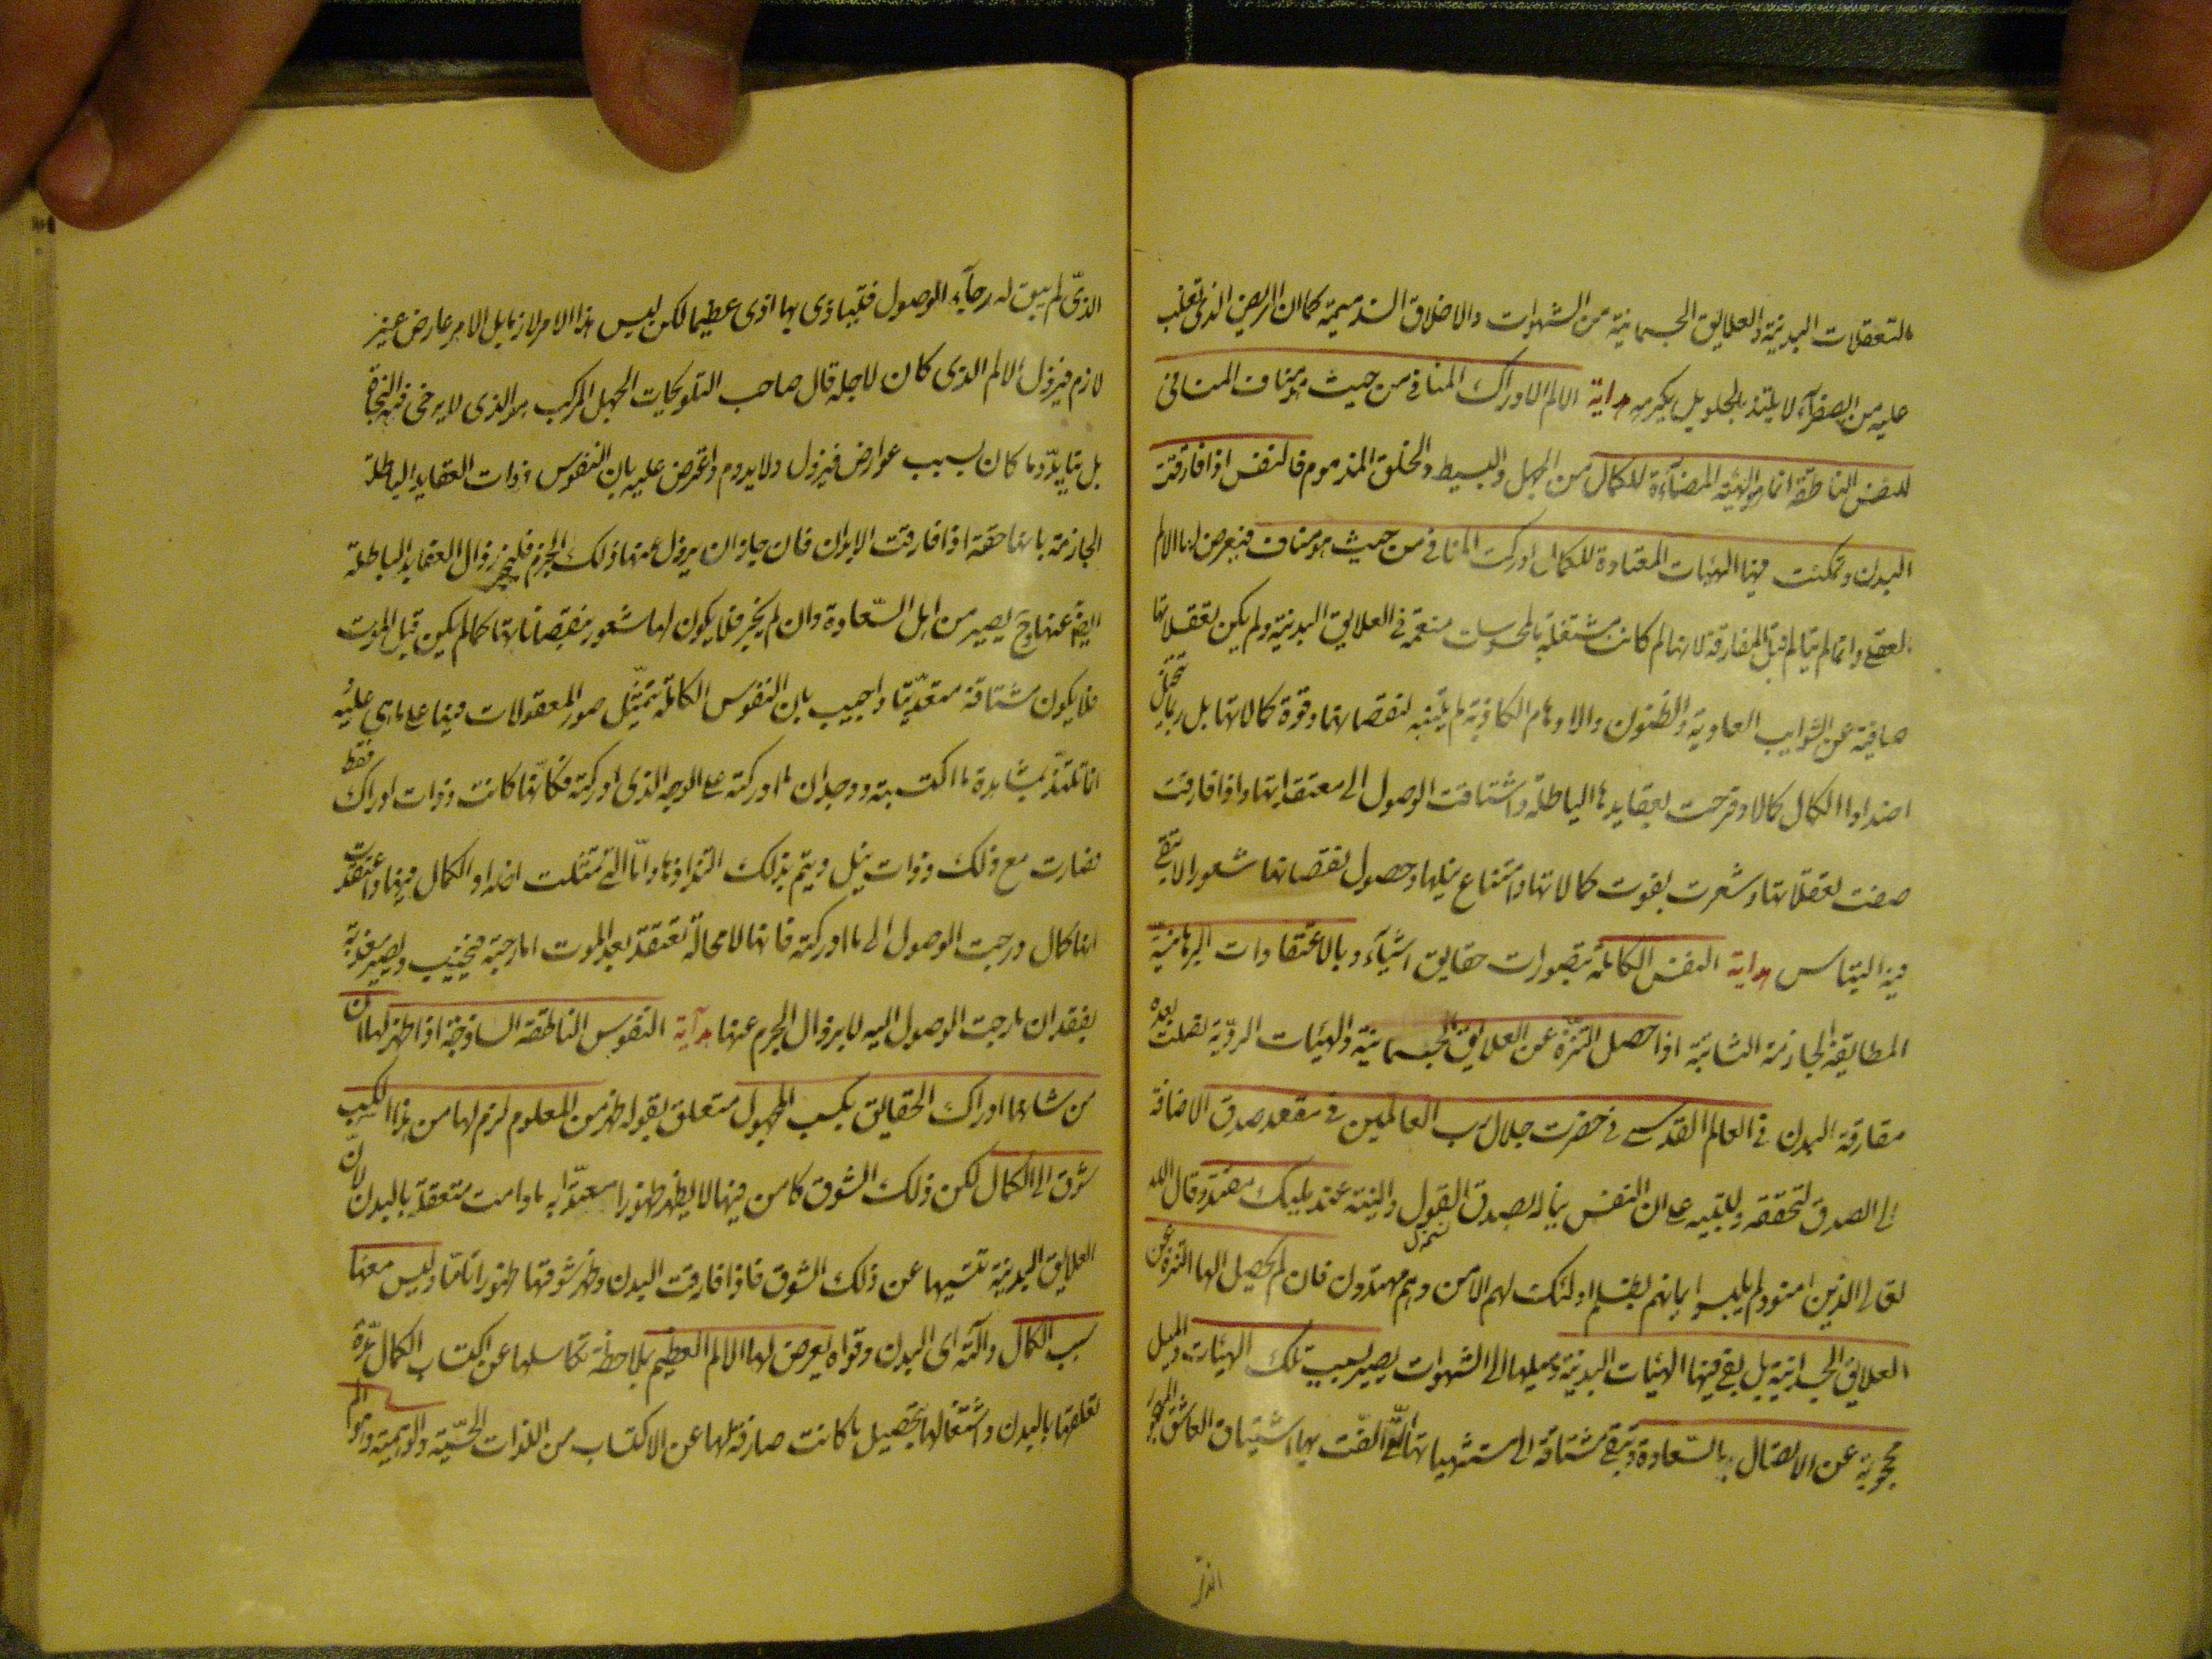 التعقلات البدنية والعلايق الجسمانية من الشهوات والاخلاق الذميمة كما ان المريض الذى تغلب
عليه مرة الصفراء لا يلتذ بالحلو بل يكرهه هداية الالم الادراك المنافى من حيث هو مناف المنافى
للنفس الناطقة انما هو الهيئة المضادة للكمال من الجهل والبسيط والخلق المذموم فالنفس اذا فارقت
البدن وتمكنت فيها الهيئات المضادة للكمال ادركت المنافى من حيث هو مناف فيعرض لها الالم
العقلى وانما لم يتالم قبل المفارقة لانها لم كانت مشتغلة بالمحسوسات منغمرة فى العلايق البدنية ولم يكن تعقلاتها
صافية عن الشوايب العادية والظنون والاوهام الكاذبة لم يتنبه لنقصانها وقوة كمالاتها بل ربما تخيل
اضدادا الكمال كمالا وفرحت بعقايدها الباطلة واشتاقت الوصول الى معتقداتها واذا فارقت
صفت تعقلاتها وشعرت بفوت كمالاتها وامتناع نيلها وحصول نقصانها شعورا لا يبقى
فيه التباس هداية النفس الكاملة بتصورات حقايق اشياء وبالاعتقادات البرهانية
المطابقة الجازمة الثابتة اذا حصل التنزه عن العلايق الجسمانية والهيئات الردية لقلت بعده
مفارقة البدن فى العالم القدسى فى حضرت جلال رب العالمين فى مقعد صدق الاضافة
الى الصدق لتحققه وللتنبيه على ان النفس يناله بصدق القول والنية عند مليك مقتدر وقال الله
تعالى الذين امنوا ولم يلبسوا ايمانهم بظلم اولئك لهم الامن وهم مهتدون فان لم يحصل لها التنزه عن
العلايق الجسدانية بل بقى فيها الهيئات البدنية وميلها الى الشهوات يصير بسبب تلك الهيئات والميل
محجوبة عن الاتصال بالسعادة وتبقى مشتاقة الى مستشهياتها التى الفت بها اشتياق العاشق المهجور
الذى
الذى لم يبق له رجاء الوصول فيتاذى بها اذى عظيما لكن ليس هذا الامر لازما بل الامر عارض غير
لازم فيزول الالم الذى كان لاجله قال صاحب التلويحات الجهل المركب هو الذى لا يرجى فيه النجاة
بل يتابد وما كان بسبب عوارض فيزول ولا يدوم واعترض عليه بان النفوس ذوات العقايد الباطلة
الجازمة بانها حقة اذا فارقت الابدان فان جاز ان يزول عنها ذلك الجزم فليجز زوال العقايد الباطلة
ايضا عنها وح يصير من اهل السعادة وان لم يجز فلا يكون لها شعور بنقصاناتها كما لم يكن قبل الموت
فلا يكون مشتاقة متعذبة واجيب بان النفوس الكاملة تتمثل صور المعقولات فيها على ما هى عليه
انما تلتذ بمشاهدة ما اكتسبته ووجدان ما ادركته على الوجه الذى ادركته فكانها كانت ذوات ادراك فقط
فصارت مع ذلك ذوات نيل ويتم بذلك التذاذها واما التى تمثلت اضداد الكمال فيها واعتقدت
انها كمال ورجت الوصول الى ما ادركته فانها لا محالة تفتقده بعد الموت ما رجته فيخيب ويصير معذبة
بفقدان ما رجت الوصول اليه لا بزوال الجزم عنها هداية النفوس الناطقة الساذجة اذا ظهر لها ان
من شانها ادراك الحقايق بكسب المجهول متعلق بقوله ظهر من المعلوم لزم لها من هذا الكسب
شوق الى الكمال لكن ذلك الشوق كامن فيها لا يظهر ظهورا معتدا به ما دامت متعلقة بالبدن لان
العلايق البدنية تنسيها عن ذلك الشوق فاذا فارقت البدن وظهر شوقها ظهورا تاما وليس معها
سبب الكمال والته اى البدن وقواه يعرض لها الالم العظيم بملاحظة تكاسلها عن اكتساب الكمال مدة
تعلقها بالبدن واشتغالها بتحصيل ما كانت صارفة لها عن الاكتساب من اللذات الحسية والوهمية وهو الم